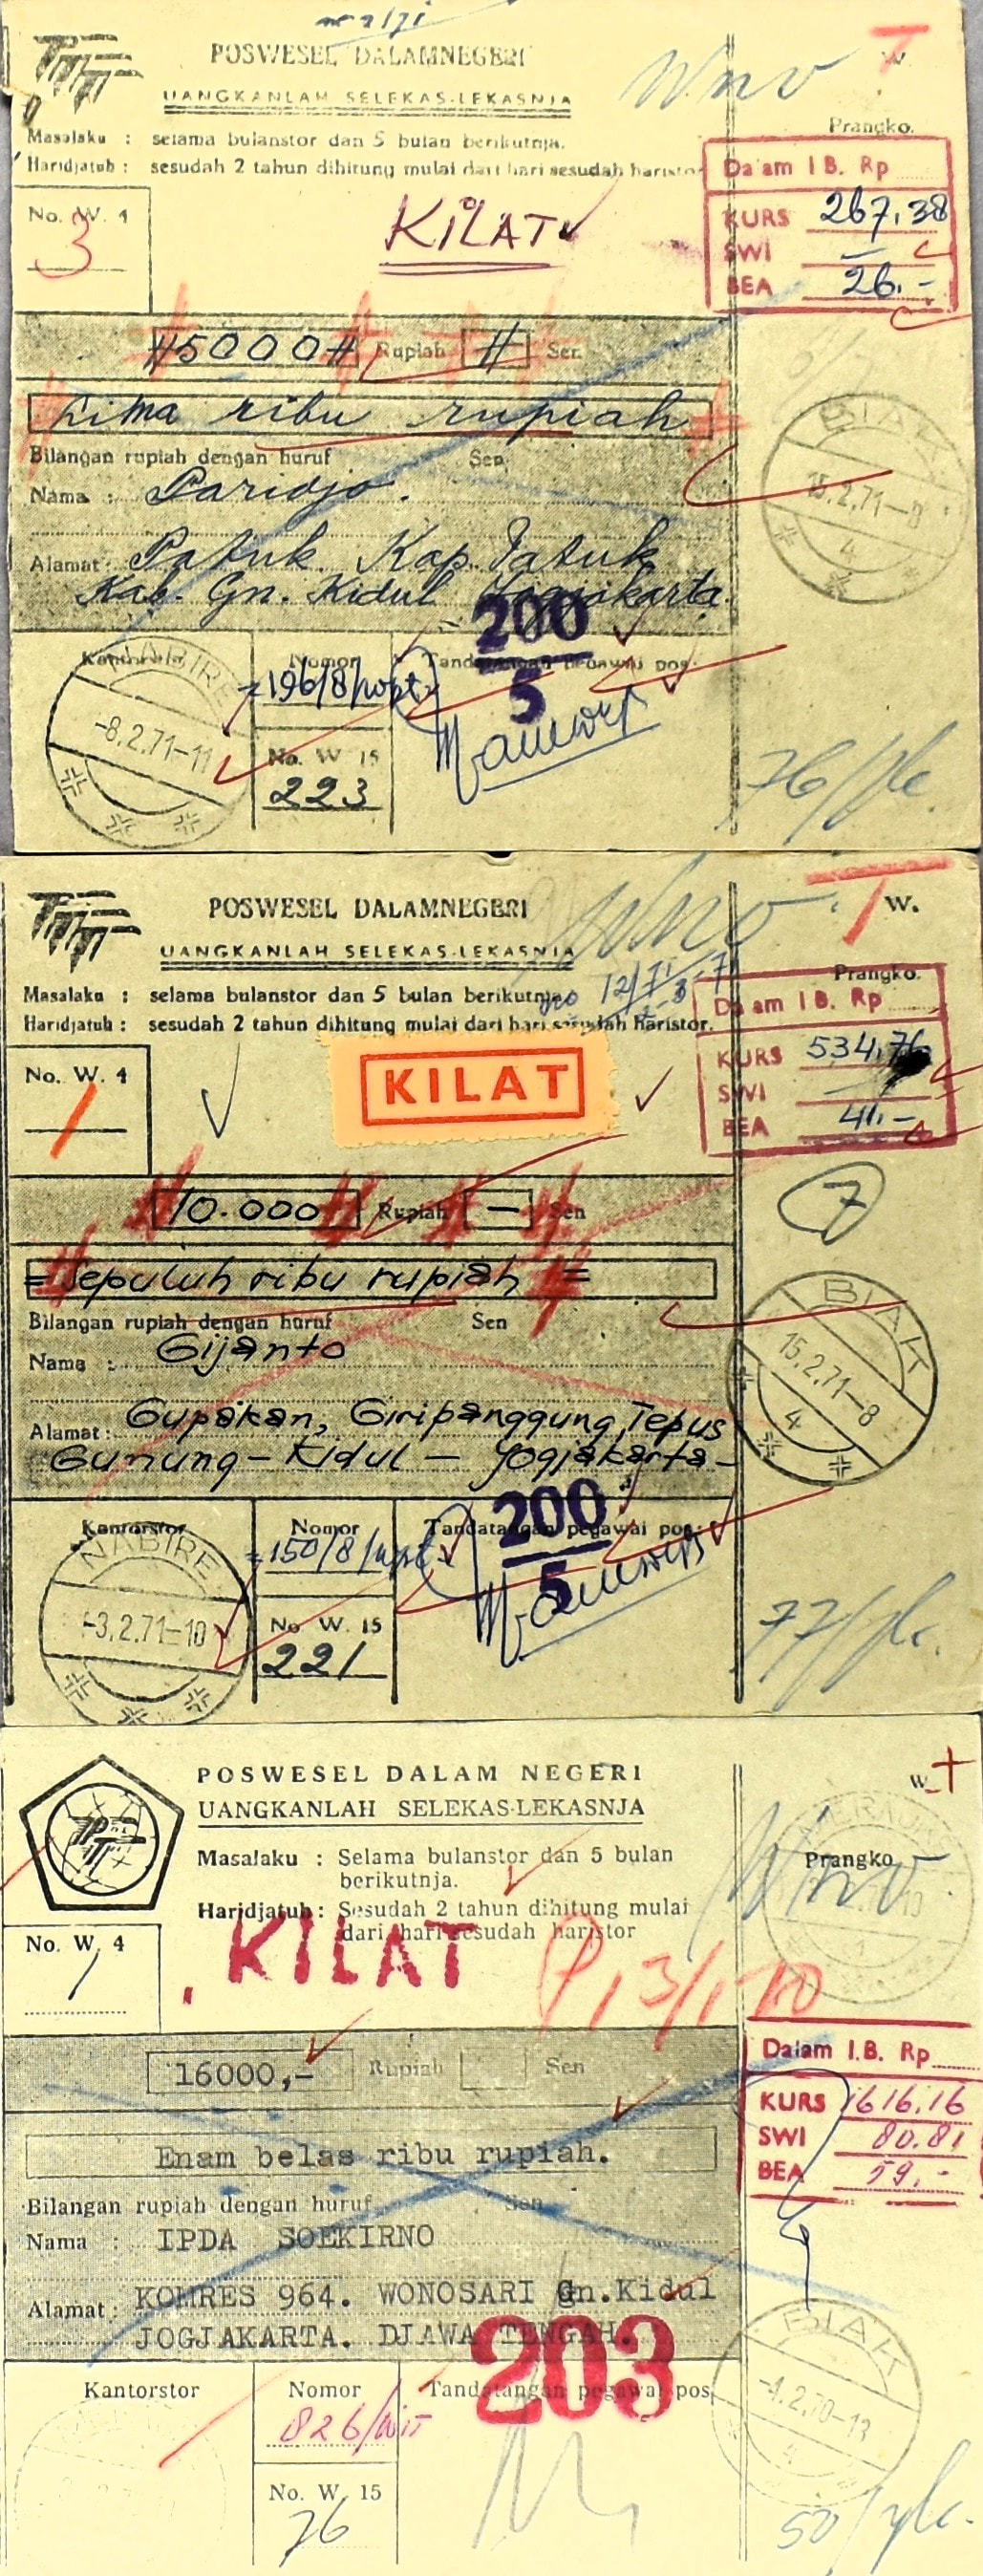 POSWESEL DALAMNEGERI
UANGKANLAH SELEKAS-LEKASNJA
Wno
T
W.
Prangko.
Masalaku : selama bulanstor dan 5 bulan berikutnja.
Haridjatuh : sesudah 2 tahun dihitung mulai dari hari sesudah haristor
Dalam I B. Rp
KURS 267,38
SWI —
BEA 26.-
No. W. 4
3
KILAT
#5000# Rupiah # Sen
Lima ribu rupiah
Bilangan rupiah dengan huruf Sen
Nama : Paridjo.
Alamat: Patuk Kap. Patuk
Kab. Gn. Kidul Jogjakarta
BIAK
15.2.71-8
4
Kantorstor
NABIRE
-8.2.71-11
Nomor
196/8/wpt
Tandatangan pegawai pos
200
5
No. W 15
223
76/
POSWESEL DALAMNEGERI
UANGKANLAH SELEKAS-LEKASNJA
Wno
T
W.
Prangko.
Masalaku : selama bulanstor dan 5 bulan berikutnja.
Haridjatuh : sesudah 2 tahun dihitung mulai dari hari sesudah haristor.
Dalam I B. Rp
KURS 534,76
SWI —
BEA 41.-
No. W. 4
1
KILAT
10.000 Rupiah — Sen
7
= Sepuluh ribu rupiah =
Bilangan rupiah dengan huruf Sen
Nama : Gijanto
Alamat: Gupakan, Giripanggung, Tepus
Gunung - Kidul - Yogjakarta -
BIAK
15.2.71-8
4
Kantorstor
NABIRE
-3.2.71-10
Nomor
150/8/wpt
Tandatangan pegawai pos
200
5
No W. 15
221
77/
POSWESEL DALAM NEGERI
UANGKANLAH SELEKAS-LEKASNJA
W.
Prangko
Wno
Masalaku : Selama bulanstor dan 5 bulan
berikutnja.
Haridjatuh : Sesudah 2 tahun dihitung mulai
dari hari sesudah haristor
No. W. 4
1
KILAT
Dalam I.B. Rp
KURS 1616,16
SWI 80.81
BEA 59,-
16000,- Rupiah Sen
Enam belas ribu rupiah.
Bilangan rupiah dengan huruf Sen
Nama : IPDA SOEKIRNO
Alamat: KOMRES 964. WONOSARI Gn.Kidul
JOGJAKARTA. DJAWA TENGAH.
203
BIAK
-4.2.70-13
4
Kantorstor
Nomor
826/
Tandatangan pegawai pos
No. W. 15
76
50/